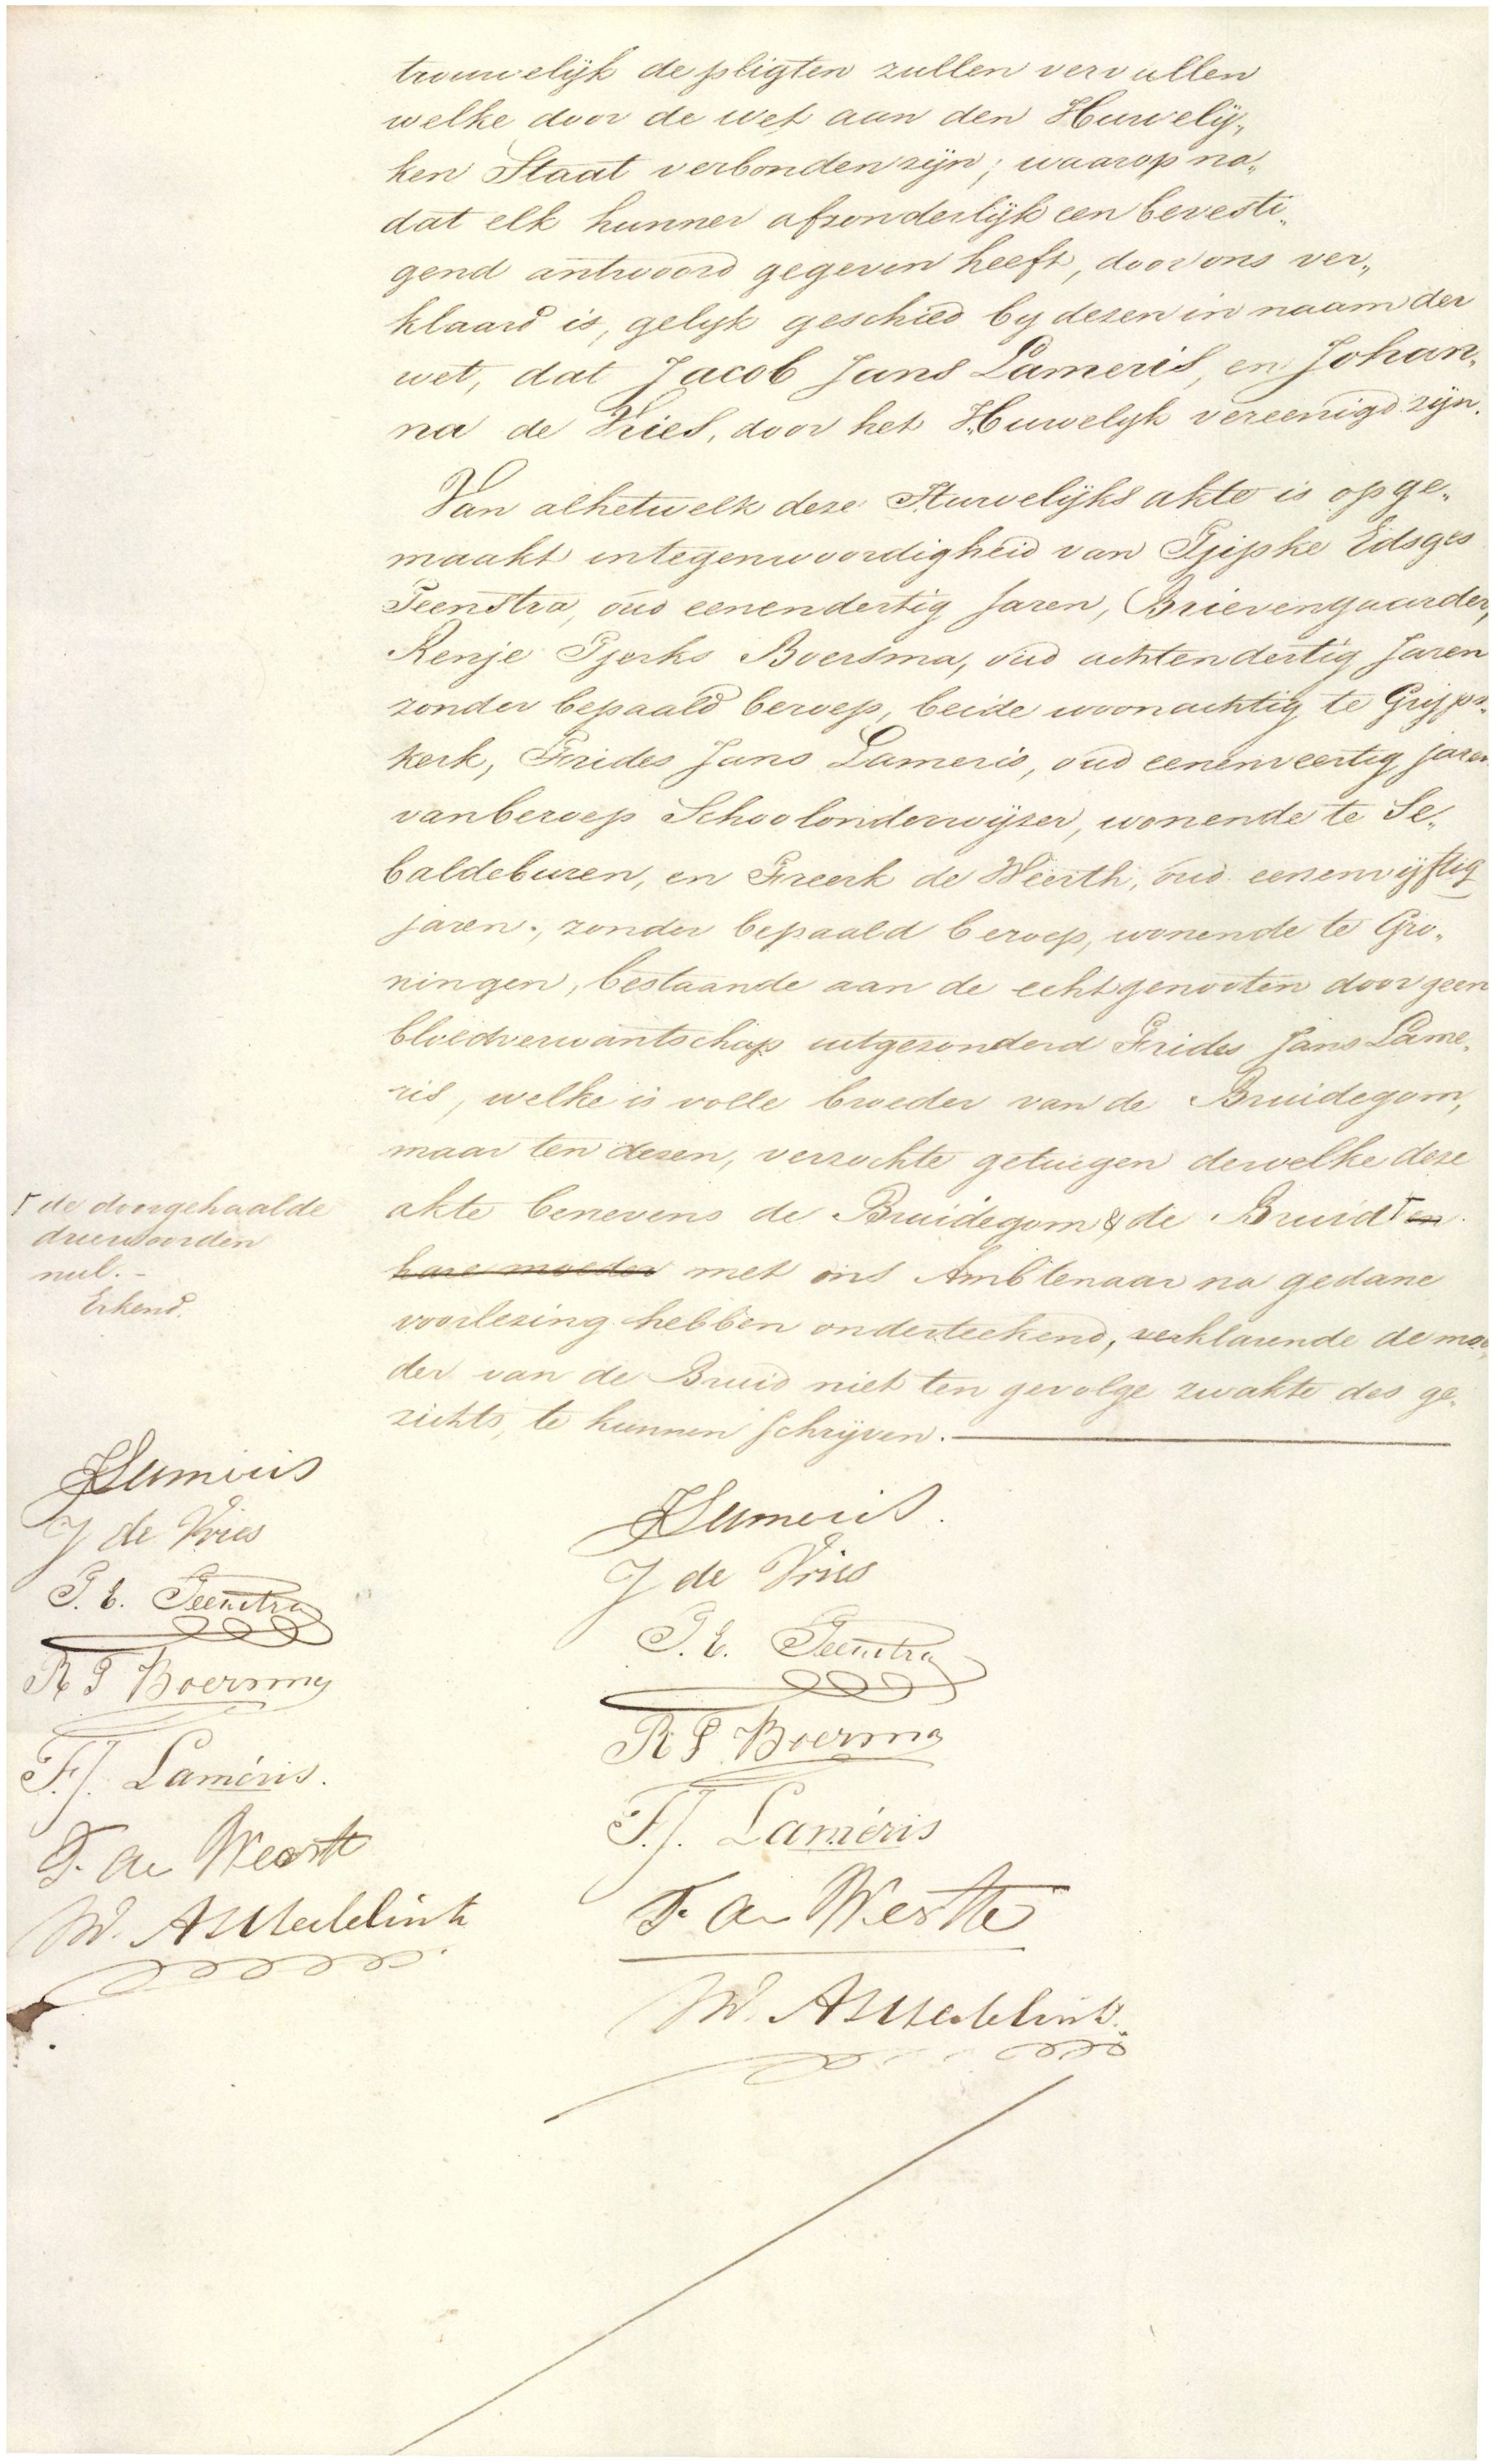 trouwelijk de pligten zullen vervullen
welke door de wet aan den Huwelij„
ken Staat verbonden zijn; waarop na„
dat elk hunner afzonderlijk een bevesti„
gend antwoord gegeven heeft, door ons ver„
klaard is, gelijk geschied by dezen in naam der
wet, dat Jacob Jans Lameris, en Johan„
na de Vries, door het Huwelyk vereenigd zijn.
Van alhetwelk deze Huwelijks akte is opge„
maakt in tegenwoordigheid van Tjipke Edsges
Teenstra, oud eenendertig Jaren, Brievengaarder,
Renje Tjerks Boersma, oud achtendertig Jaren
zonder bepaald beroep, beide woonachtig te Grijps„
kerk, Frides Jans Lameris, oud eenenveertig jaren
van beroep Schoolonderwijzer, wonende te Se„
baldeburen, en Freerk de Weerth, oud eenenvijftig
jaren, zonder bepaald beroep, wonende te Gro„
ningen, bestaande aan de echtgenooten door geen
bloedverwantschap uitgezonderd Frides Jans Lame„
ris, welke is volle broeder van de Bruidegom,
maar ten dezen, verzochte getuigen dewelke deze
akte benevens de Bruidegom & de Bruid Γ en
hare moeder met ons Ambtenaar na gedane
voorlezing hebben onderteekend, verklarende de moe„
der van de Bruid niet ten gevolge zwakte des ge„
zichts, te kunnen schrijven.
Γ de doorgehaalde
drie woorden
nul. -
Erkend.
JJLameris
J de Vries
T. E. Teenstra
R T Boersma
F. J. Laméris.
F. de Weerth
W. A
JJLameris.
J de Vries
T. E. Teenstra
R T Boersma
F. J. Laméris
F. de Weerth
W. A